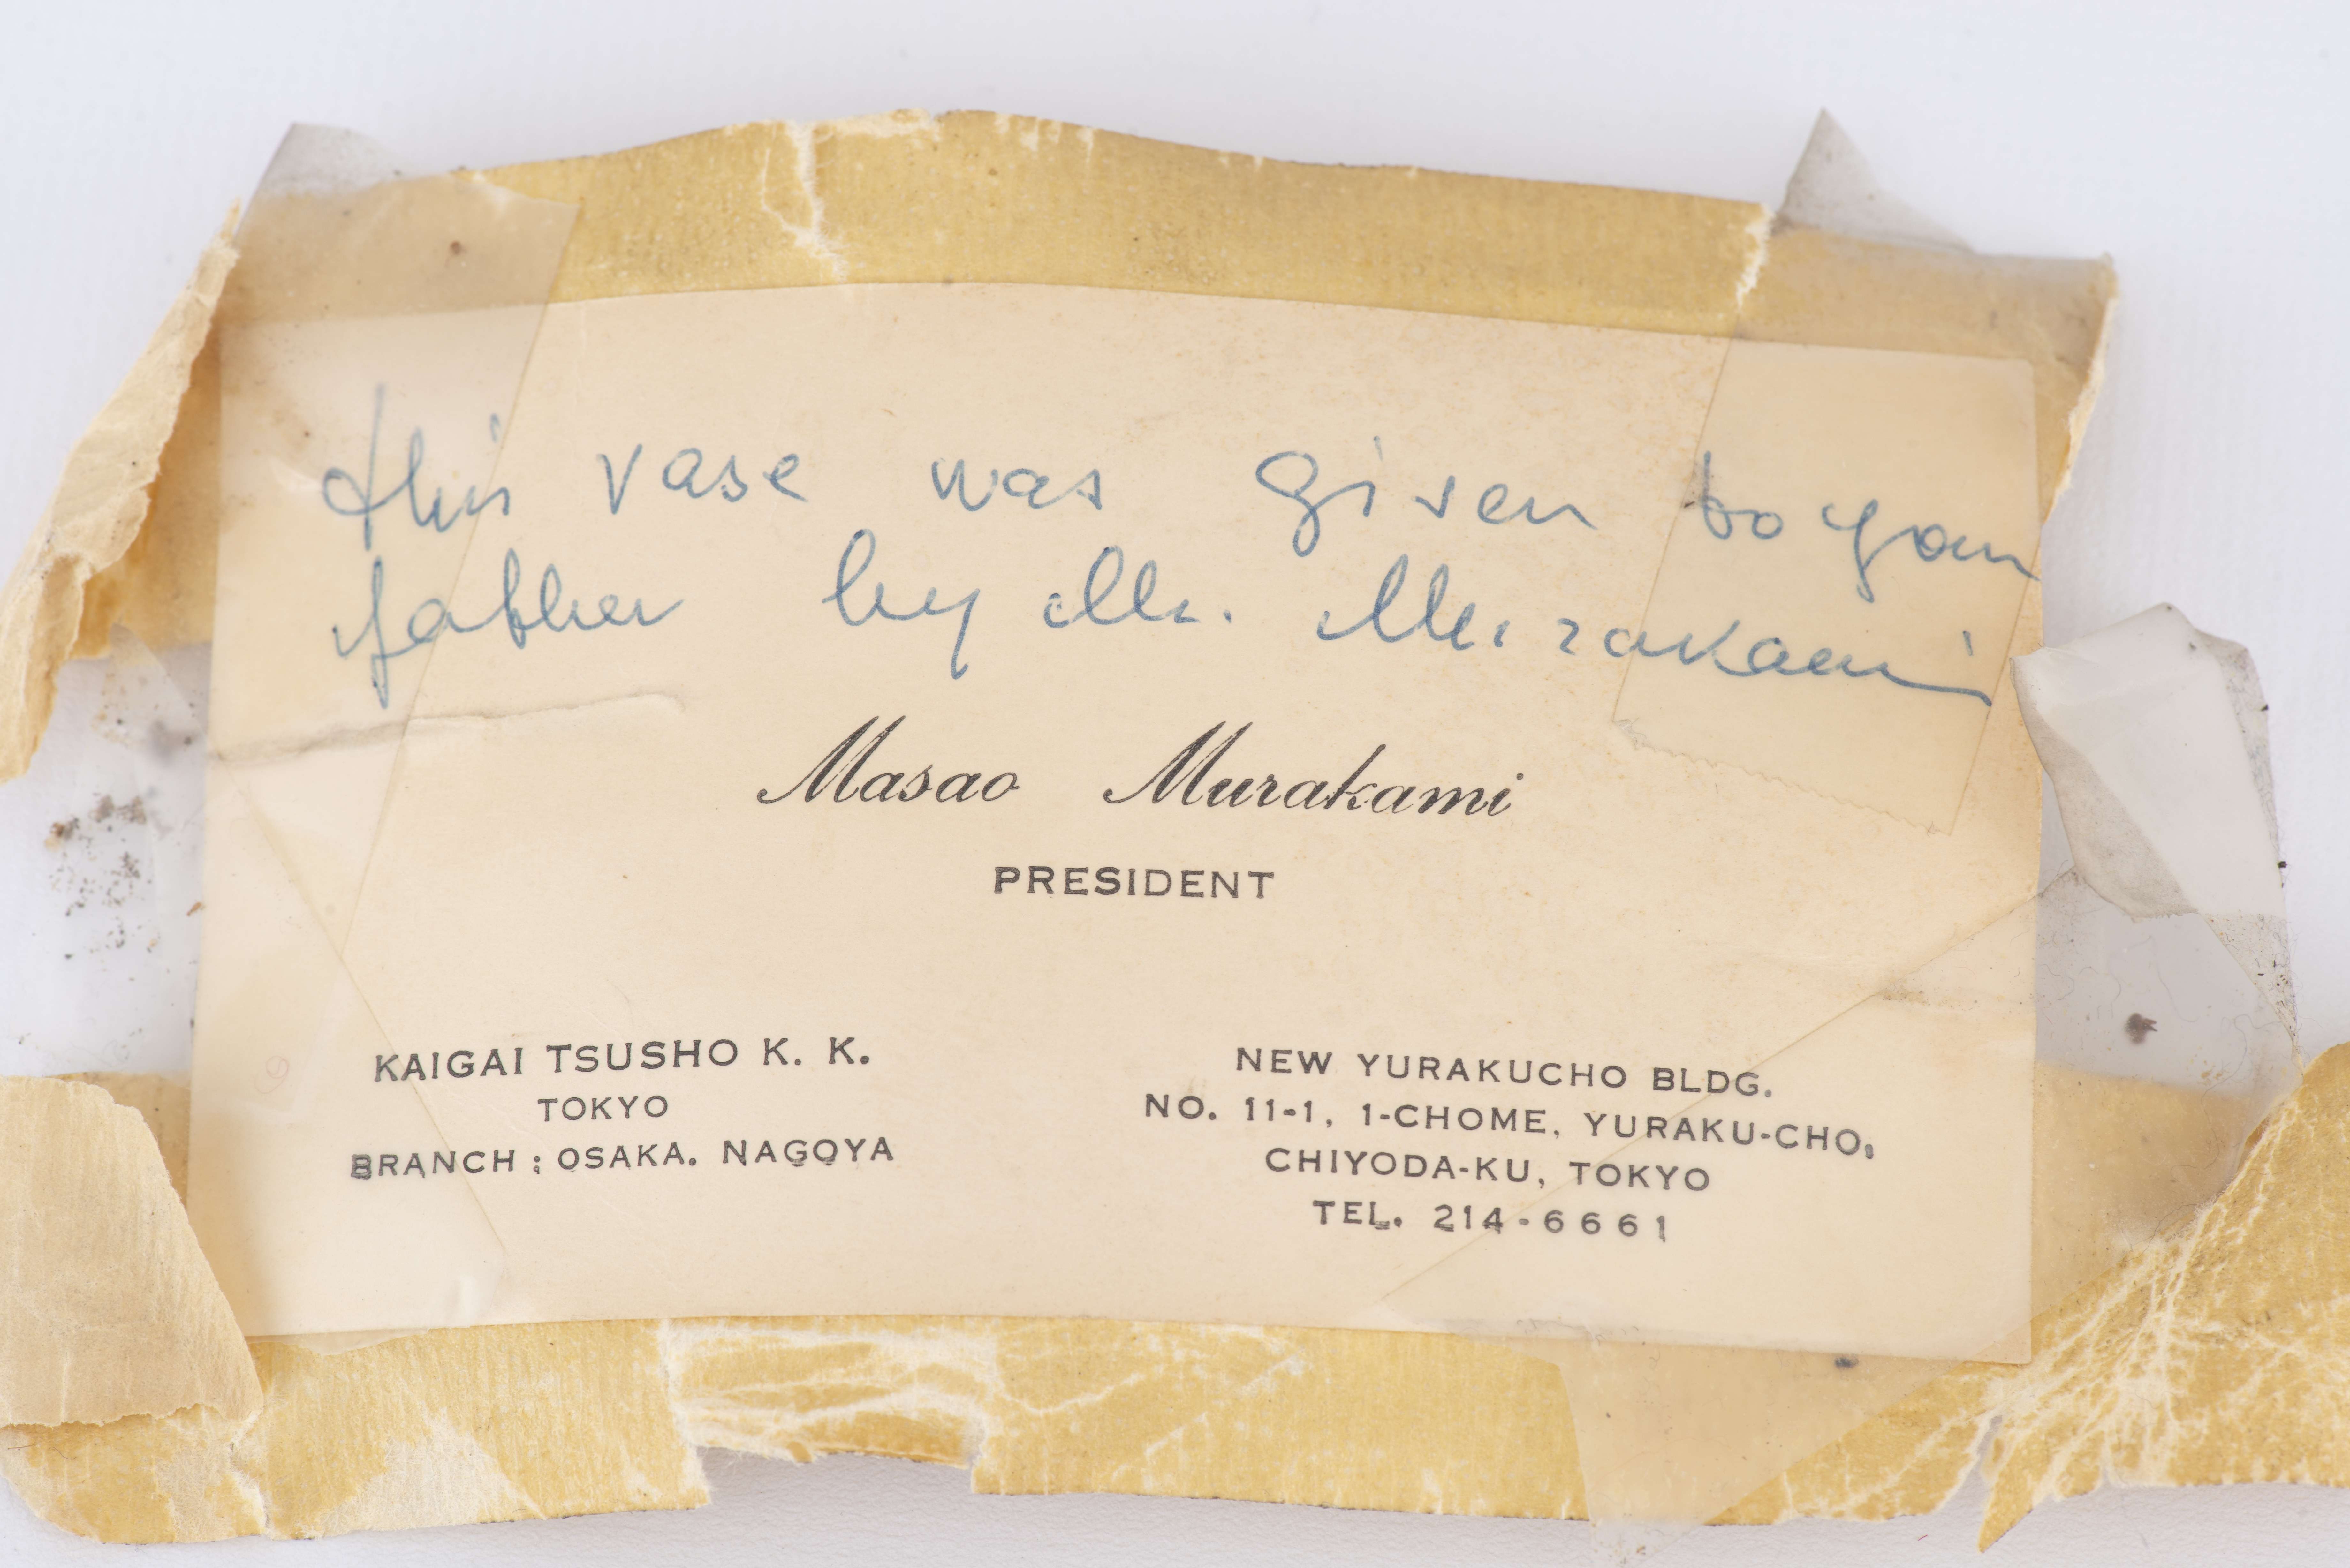 this vase was given to your
father by Mr. Murakami
Masao Murakami
PRESIDENT
KAIGAI TSUSHO K. K.
TOKYO
BRANCH : OSAKA. NAGOYA
NEW YURAKUCHO BLDG.
NO. 11-1, 1-CHOME, YURAKU-CHO,
CHIYODA-KU, TOKYO
TEL. 214-6661